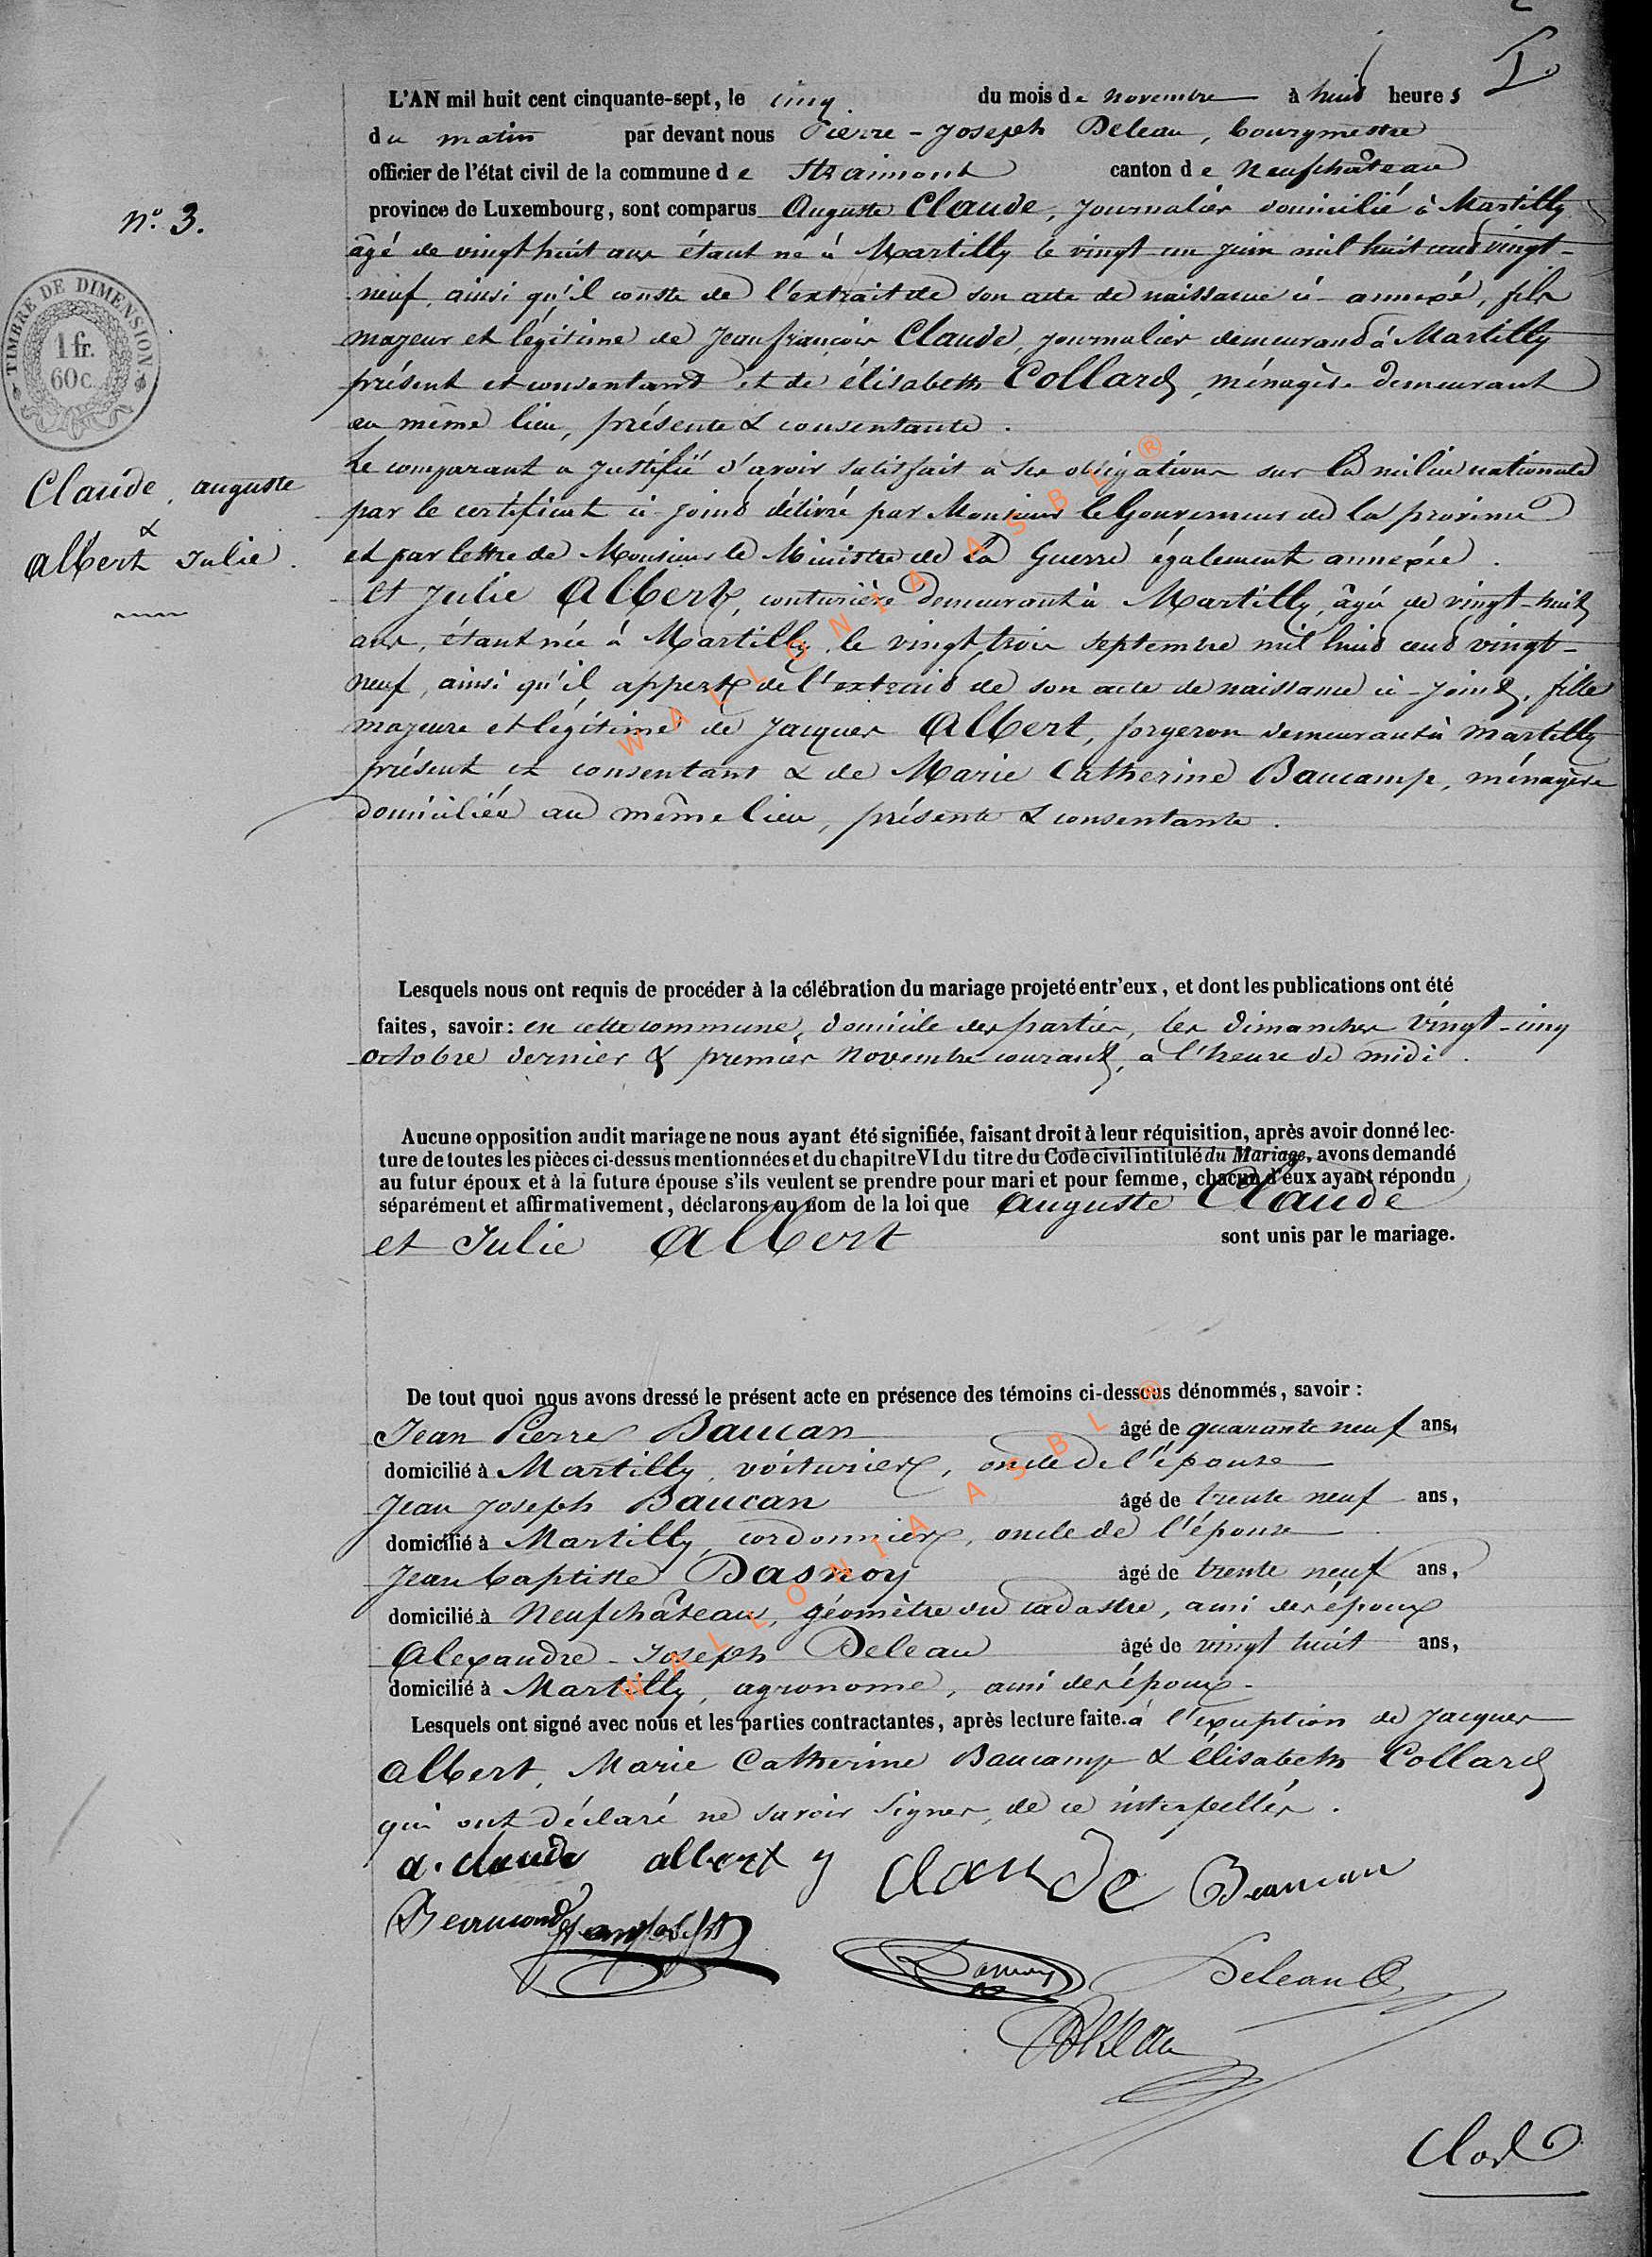 I.
L'AN mil huit cent cinquante-sept, le cinq du mois de novembre à huit heures
du matin par devant nous Pierre-Joseph Deleau, bourgmestre
officier de l'état civil de la commune de Straimont canton de Neufchâteau
n.o 3.
province de Luxembourg, sont comparus Auguste Claude, journalier domicilié à Martilly
âgé de vingt huit ans étant né à Martilly le vingt un juin mil huit cent vingt-
neuf, ainsi qu'il conste de l'extrait de son acte de naissance ci-annexé, fils
majeur et légitime de Jean françois Claude, journalier demeurant à Martilly
présent et consentant et de élisabeth Collard, ménagère demeurant
au même lieu, présente & consentante.
TIMBRE DE DIMENSION
1 fr.
60 c.
Claude, auguste
&
Albert Julie.
Le comparant a justifié d'avoir satisfait à ses obligations sur la milice nationale
par le certificat ci-joint délivré par Monsieur le Gouverneur de la province
et par lettre de Monsieur le Ministre de la Guerre également annexée.
Et Julie Albert, couturière demeurant à Martilly, âgée de vingt-huit
ans, étant née à Martilly, le vingt trois septembre mil huit cent vingt-
neuf, ainsi qu'il appert de l'extrait de son acte de naissance ci-joint, fille
majeure et légitime de Jacques Albert, forgeron demeurant à Martilly
présent et consentant & de Marie Catherine Baucamp, ménagère
domiciliée au même lieu, présente & consentante.
WALLONIA ASBL ®
Lesquels nous ont requis de procéder à la célébration du mariage projeté entr'eux, et dont les publications ont été
faites, savoir: en cette commune, domicile des parties, les dimanches vingt-cinq
octobre dernier & premier novembre courant, à l'heure de midi.
Aucune opposition audit mariage ne nous ayant été signifiée, faisant droit à leur réquisition, après avoir donné lec-
ture de toutes les pièces ci-dessus mentionnées et du chapitre VI du titre du Code civil intitulé du Mariage, avons demandé
au futur époux et à la future épouse s'ils veulent se prendre pour mari et pour femme, chacun d'eux ayant répondu
séparément et affirmativement, déclarons au nom de la loi que Auguste Claude
et Julie Albert sont unis par le mariage.
De tout quoi nous avons dressé le présent acte en présence des témoins ci-dessous dénommés, savoir:
Jean Pierre Baucan âgé de quarante neuf ans,
domicilié à Martilly, voiturier, oncle de l'épouse
Jean Joseph Baucan âgé de trente neuf ans,
domicilié à Martilly, cordonnier, oncle de l'épouse
Jean baptiste Dasnoy âgé de trente neuf ans,
domicilié à Neufchâteau, géomètre du cadastre, ami des époux
Alexandre-Joseph Deleau âgé de vingt huit ans,
domicilié à Martilly, agronome, ami des époux.
WALLONIA ASBL ®
Lesquels ont signé avec nous et les parties contractantes, après lecture faite. à l'exception de Jacques
Albert, Marie Catherine Baucamp & élisabeth Collard
qui ont déclaré ne savoir signer, de ce interpellés.
a. claude albert y Claude Beaucan
Dasnoy Deleau
Clos